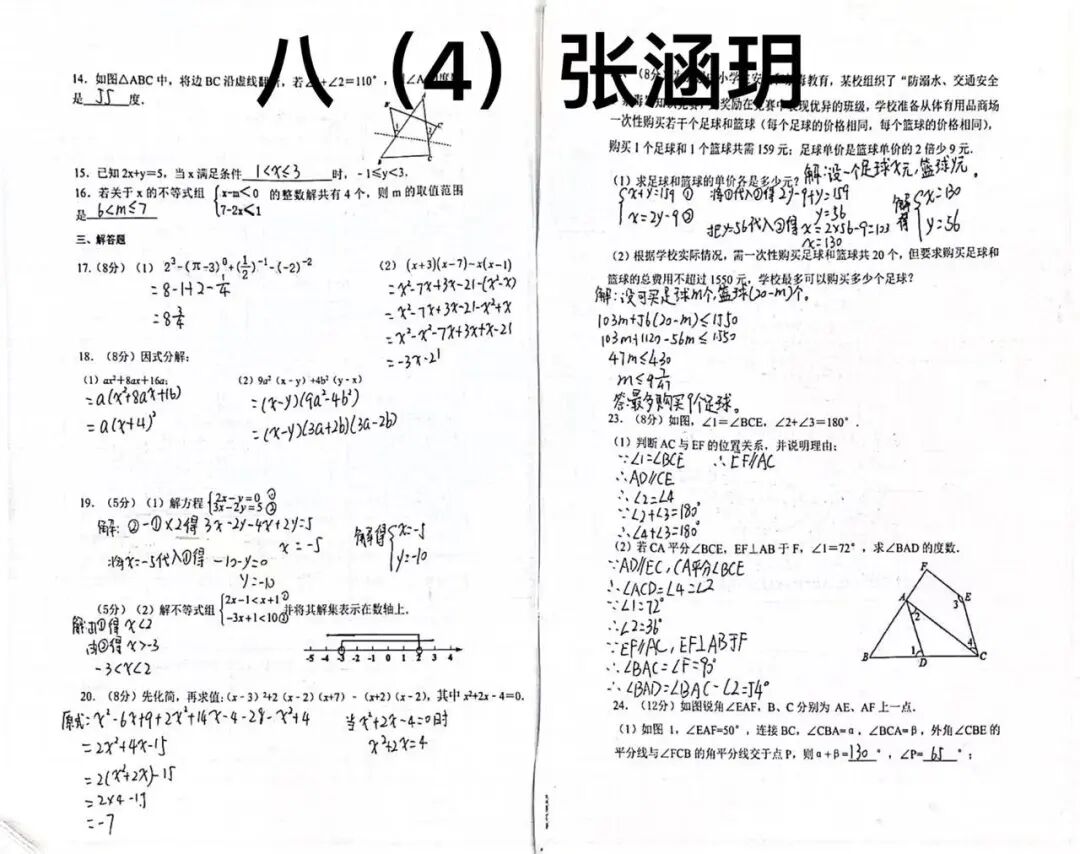 八（4）张涵玥
14. 如图△ABC 中，将边 BC 沿虚线翻折，若∠1+∠2=110°，则∠A的度数
是 55 度.
15. 已知 2x+y=5，当 x 满足条件 1<x≤3 时，-1≤y<3.
16. 若关于 x 的不等式组 {x-m<0 7-2x<1 的整数解共有 4 个，则 m 的取值范围
是 6<m≤7
三、解答题
17.(8分)（1）2³-(π-3)⁰+(1/2)⁻¹-(-2)⁻²
=8-1+2-1/4
=8 3/4
（2）(x+3)(x-7)-x(x-1)
=x²-7x+3x-21-(x²-x)
=x²-7x+3x-21-x²+x
=x²-x²-7x+3x+x-21
=-3x-21
18.（8分）因式分解：
（1）ax²+8ax+16a;
=a(x²+8ax+16)
=a(x+4)²
（2）9a²（x-y）+4b²（y-x）
=(x-y)(9a²-4b²)
=(x-y)(3a+2b)(3a-2b)
19.（5分）（1）解方程 {2x-y=0 ① 3x-2y=5 ②
解：②-①×2得 3x-2y-4x+2y=5
x=-5
将x=-5代入①得 -10-y=0
y=-10
解得{x=-5 y=-10
（5分）（2）解不等式组 {2x-1<x+1① -3x+1<10② 并将其解集表示在数轴上。
解：由①得 x<2
由②得 x>-3
-3<x<2
-5 -4 -3 -2 -1 0 1 2 3 4
20.（8分）先化简，再求值：(x-3)²+2（x-2）(x+7）-（x+2）（x-2），其中 x²+2x-4=0.
原式=x²-6x+9+2x²+14x-4-28-x²+4
=2x²+4x-15
=2(x²+2x)-15
=2×4-15
=-7
当x²+2x-4=0时
x²+2x=4
（8分）
教育，某校组织了“防溺水、交通安全
奖励在竞赛中表现优异的班级，学校准备从体育用品商场
一次性购买若干个足球和篮球（每个足球的价格相同，每个篮球的价格相同），
购买 1 个足球和 1 个篮球共需 159 元；足球单价是篮球单价的 2 倍少 9 元.
（1）求足球和篮球的单价各是多少元？ 解：设一个足球x元，篮球y元.
{x+y=159 ① x=2y-9 ②
将②代入①得 2y-9+y=159
y=56
把y=56代入②得 x=2×56-9=103
x=130
解得{x=130 y=56
（2）根据学校实际情况，需一次性购买足球和篮球共 20 个，但要求购买足球和
篮球的总费用不超过 1550 元，学校最多可以购买多少个足球？
解：设可买足球m个，篮球(20-m)个。
103m+56(20-m)≤1550
103m+1120-56m≤1550
47m≤430
m≤9 7/47
答：最多购买9个足球。
23.（8分）如图，∠1=∠BCE，∠2+∠3=180°.
（1）判断 AC 与 EF 的位置关系，并说明理由;
∵∠1=∠BCE ∴EF∥AC
∴AD∥CE
∴∠2=∠4
∵∠2+∠3=180°
∴∠4+∠3=180°
（2）若 CA 平分∠BCE，EF⊥AB 于 F，∠1=72°，求∠BAD 的度数.
∵AD∥EC, CA平分∠BCE
∴∠ACD=∠4=∠2
∵∠1=72°
∴∠2=36°
∵EF∥AC, EF⊥AB于F
∴∠BAC=∠F=90°
∴∠BAD=∠BAC-∠2=54°
F A 2 3 E 1 4 B D C
24.（12分）如图锐角∠EAF，B、C 分别为 AE、AF 上一点.
（1）如图 1，∠EAF=50°，连接 BC，∠CBA=α，∠BCA=β，外角∠CBE 的
平分线与∠FCB 的角平分线交于点 P，则 α+β=130°，∠P=65°；